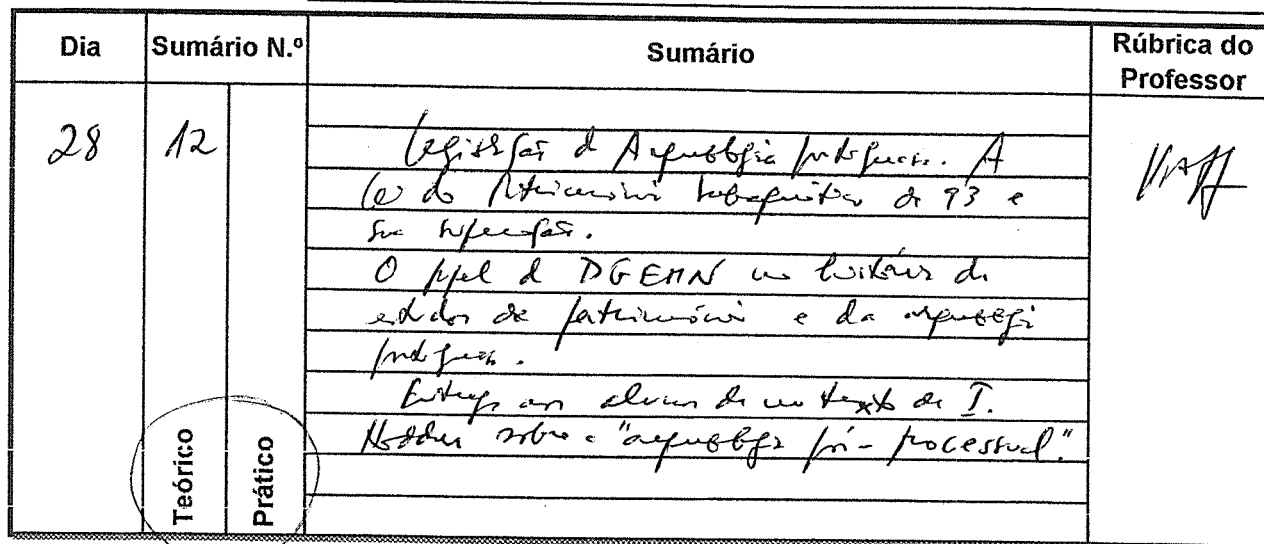 Dia Sumário N.º Sumário Rúbrica do Professor
28 12
Legislação de Arqueologia portuguesa. A
lei do Património subaquático de 93 e
sua superação.
O papel da DGEMN na história dos
estudos de património e da arqueologia
portuguesa.
Entrega aos alunos de um texto de I.
Hodder sobre a "arqueologia pós-processual."
Teórico Prático